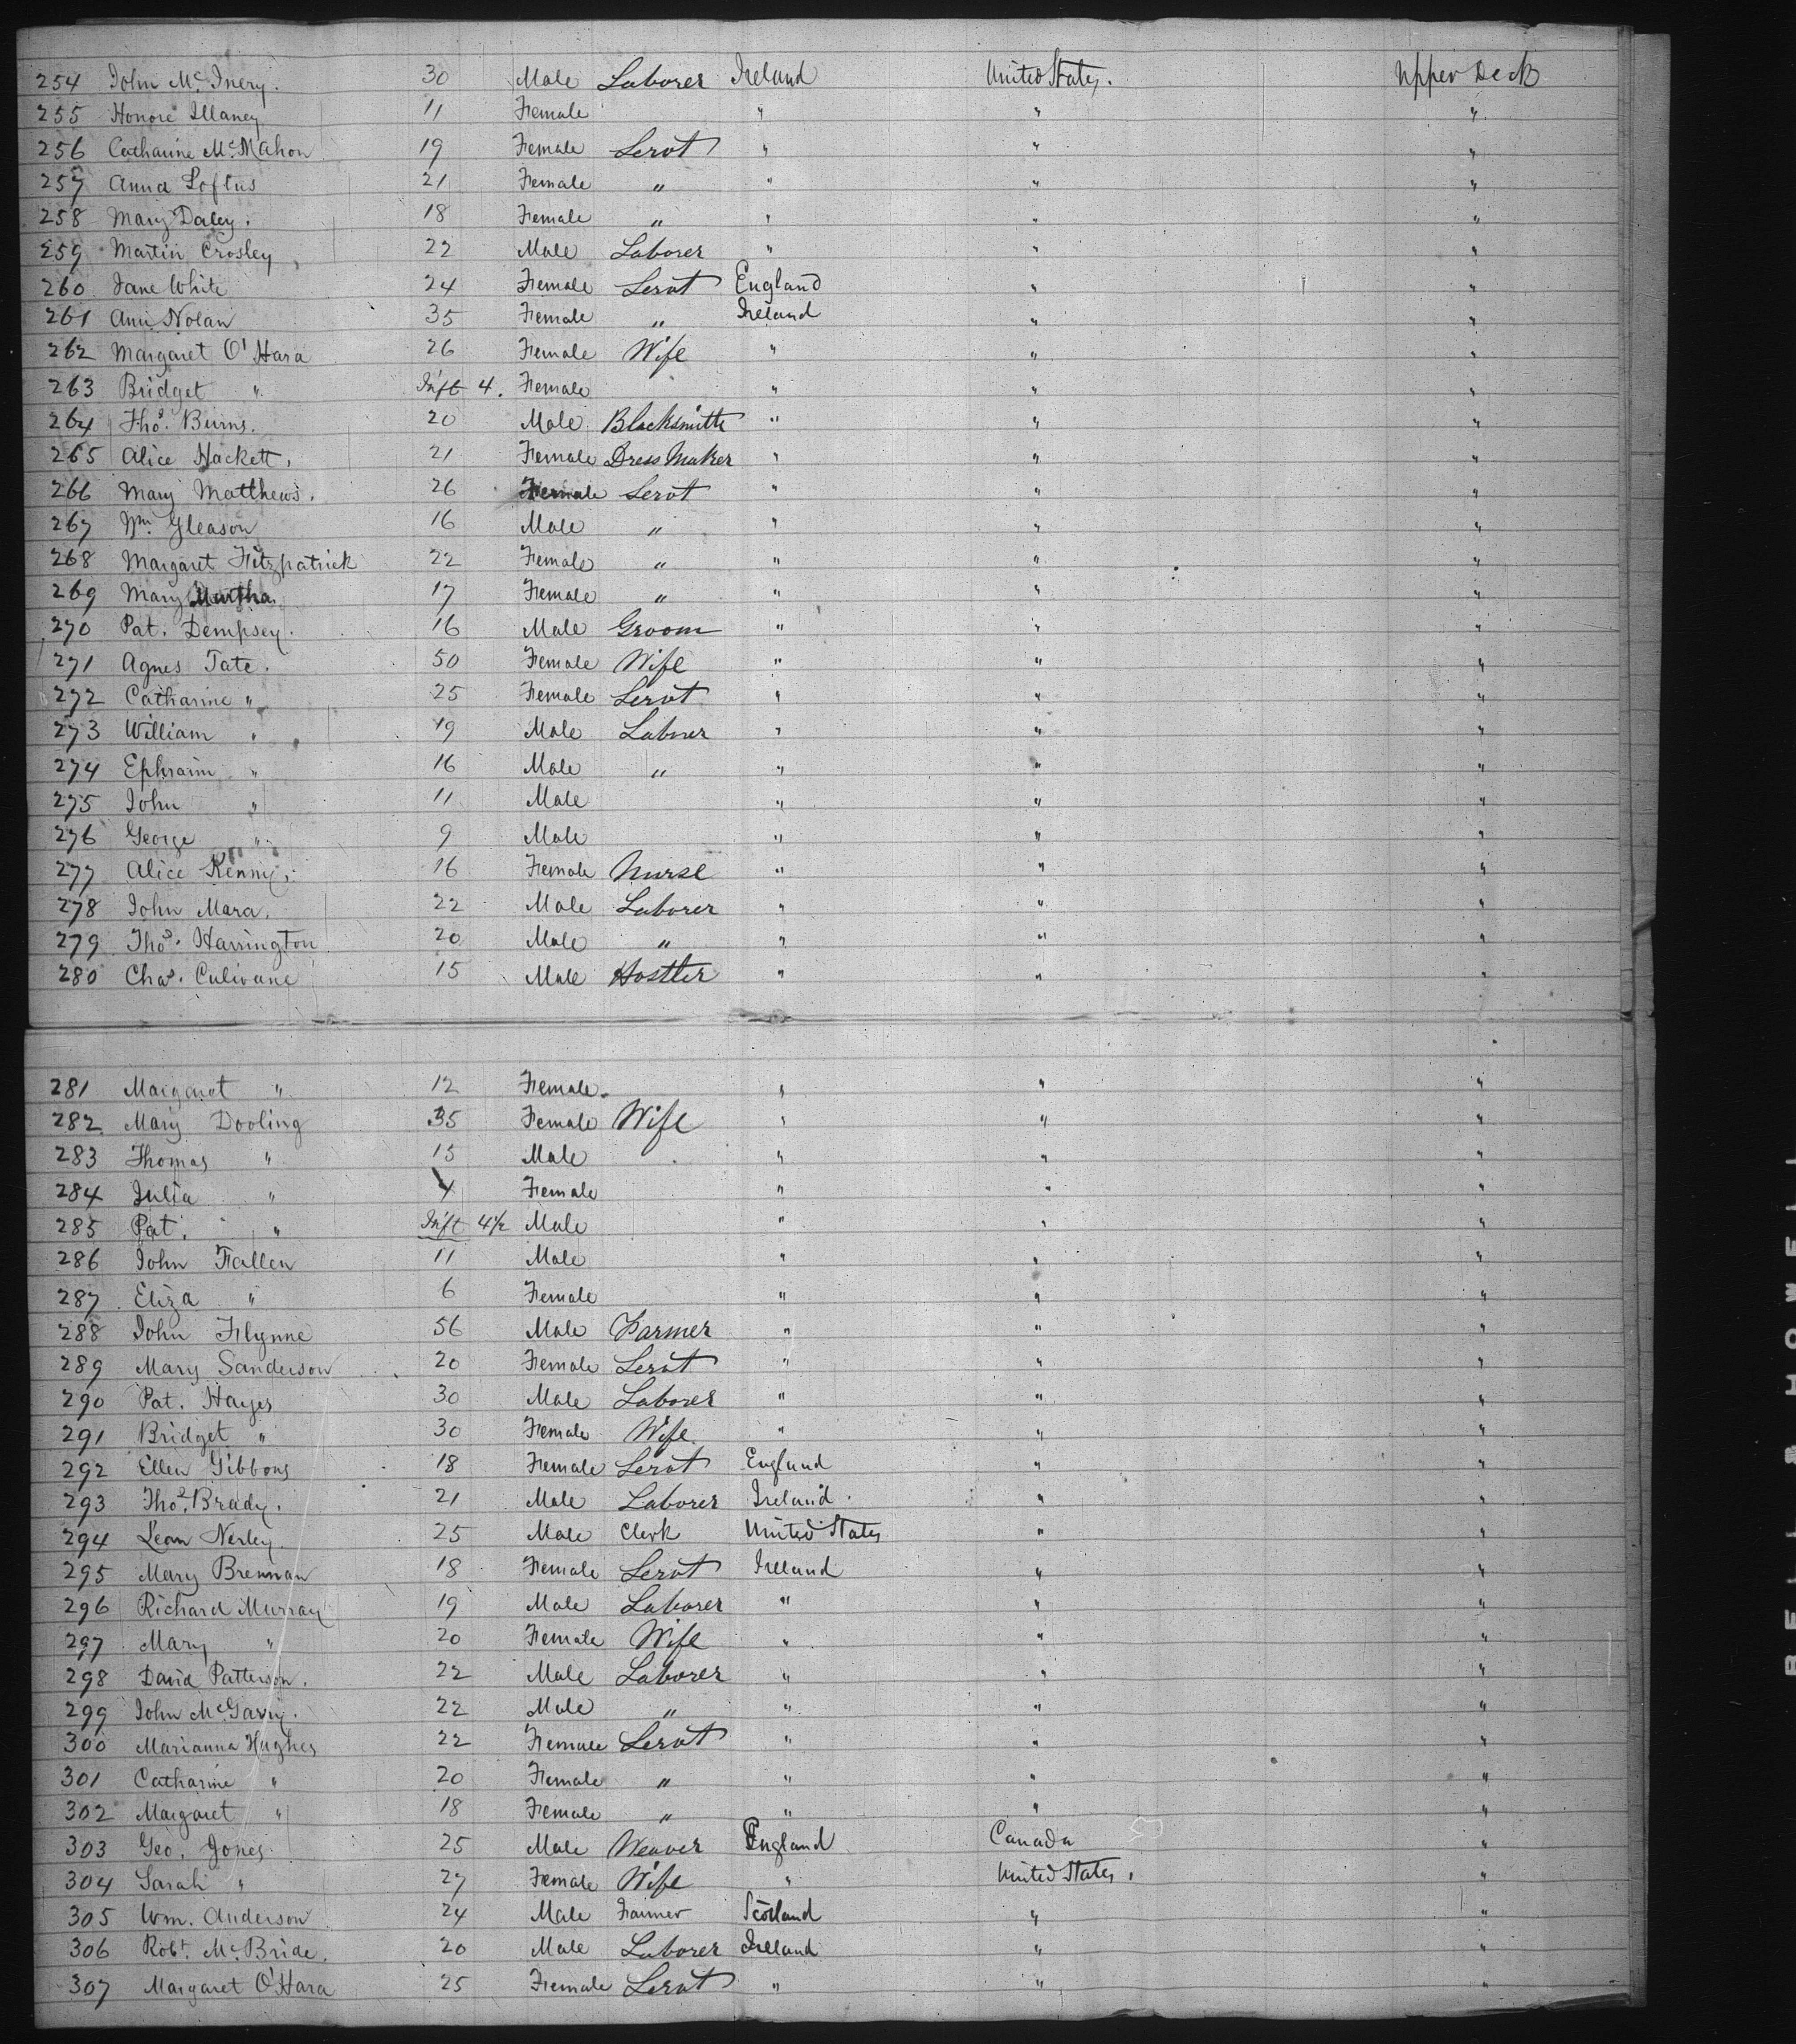 254 John McInery. 30 Male Laborer Ireland United States. Upper Deck
255 Honore Illaney 11 Female " " "
256 Catharine McMahon 19 Female Servt " " "
257 Anna Loftus 21 Female " " " "
258 Mary Daley. 18 Female " " " "
259 Martin Crosley 22 Male Laborer " " "
260 Jane White 24 Female Servt England " "
261 Ann Nolan 35 Female " Ireland " "
262 Margaret O'Hara 26 Female Wife " " "
263 Bridget " Inft 4. Female " " "
264 Thos. Burns. 20 Male Blacksmith " " "
265 Alice Hackett. 21 Female Dress Maker " " "
266 Mary Matthews. 26 Female Servt " " "
267 Wm Gleason 16 Male " " " "
268 Margaret Fitzpatrick 22 Female " " " "
269 Mary Murtha. 17 Female " " " "
270 Pat. Dempsey. 16 Male Groom " " "
271 Agnes Tate. 50 Female Wife " " "
272 Catharine " 25 Female Servt " " "
273 William " 19 Male Laborer " " "
274 Ephraim " 16 Male " " " "
275 John " 11 Male " " "
276 George " 9 Male " " "
277 Alice Kenny. 16 Female Nurse " " "
278 John Mara. 22 Male Laborer " " "
279 Thos. Harrington 20 Male " " " "
280 Chas. Culivane 15 Male Hostler " " "
281 Margaret " 12 Female. " " "
282 Mary Dooling 35 Female Wife " " "
283 Thomas " 13 Male " " "
284 Julia " 4 Female " " "
285 Pat. " Inft 4/2 Male " " "
286 John Fallen 11 Male " " "
287 Eliza " 6 Female " " "
288 John Flynne 56 Male Farmer " " "
289 Mary Sanderson 20 Female Servt " " "
290 Pat. Hayes 30 Male Laborer " " "
291 Bridget " 30 Female Wife " " "
292 Ellen Gibbons 18 Female Servt England " "
293 Thos. Brady. 21 Male Laborer Ireland. " "
294 Leon Nerley. 25 Male Clerk United States " "
295 Mary Brennan 18 Female Servt Ireland " "
296 Richard Murray 19 Male Laborer " " "
297 Mary " 20 Female Wife " " "
298 David Patterson. 22 Male Laborer " " "
299 John McGavy. 22 Male " " " "
300 Marianna Hughes 22 Female Servt " " "
301 Catharine " 20 Female " " " "
302 Margaret " 18 Female " " " "
303 Geo. Jones 25 Male Weaver England Canada "
304 Sarah " 27 Female Wife " United States. "
305 Wm. Anderson 24 Male Farmer Scotland " "
306 Robt. McBride. 20 Male Laborer Ireland " "
307 Margaret O'Hara 25 Female Servt " " "